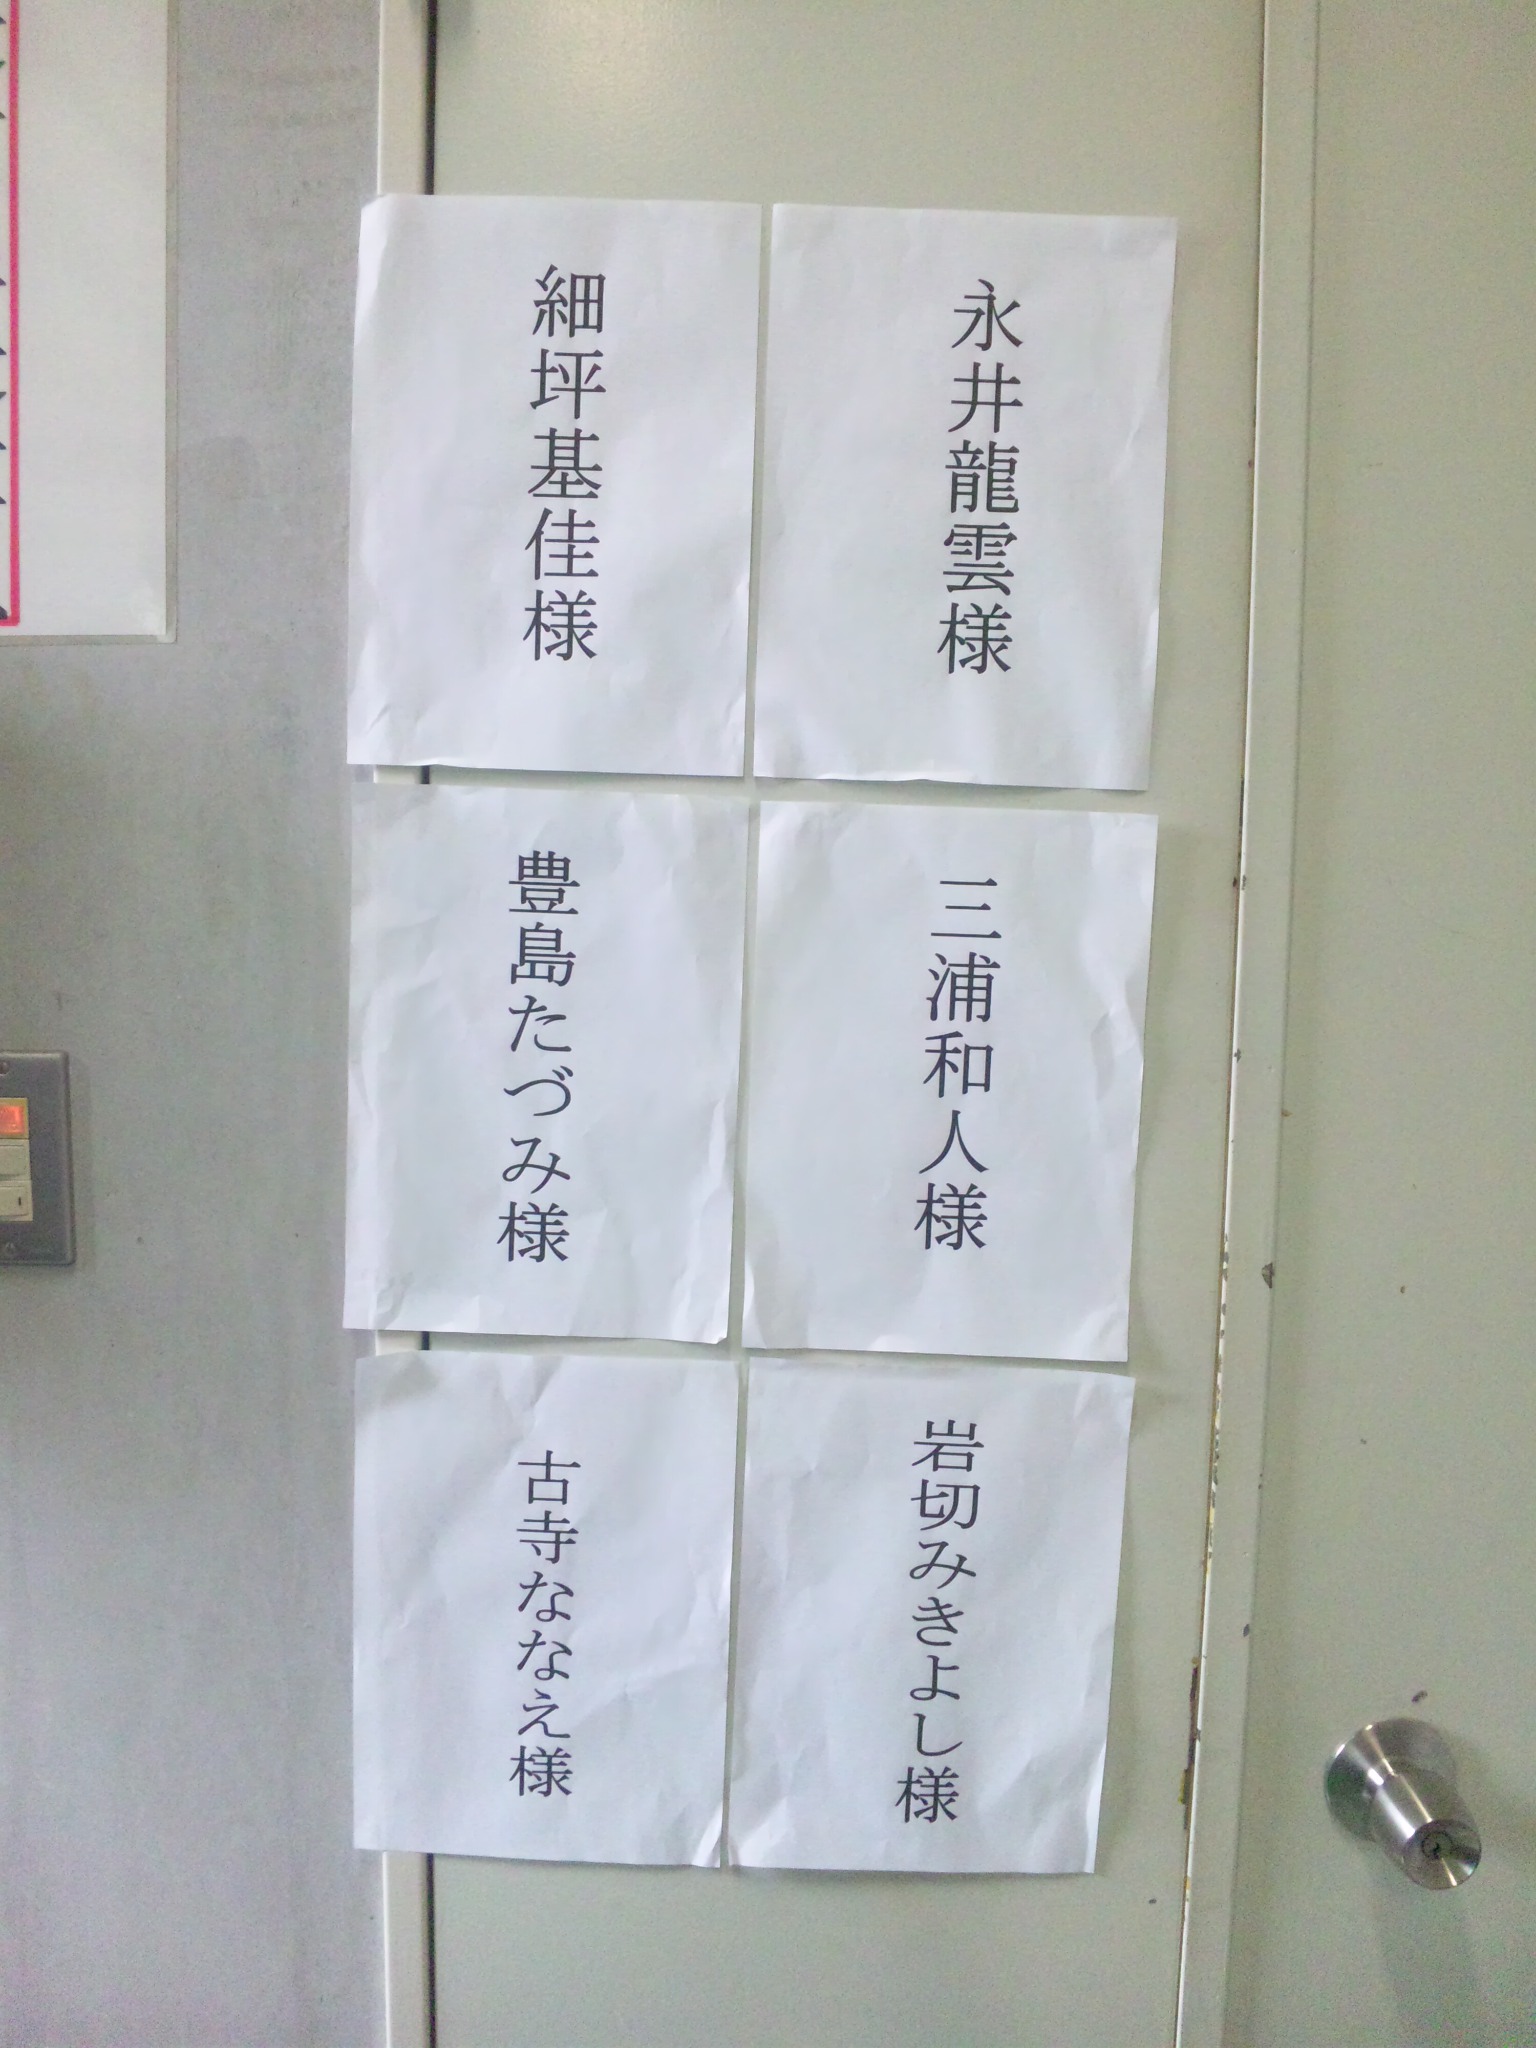 永井龍雲様
細坪基佳様
三浦和人様
豊島たづみ様
岩切みきよし様
古寺ななえ様